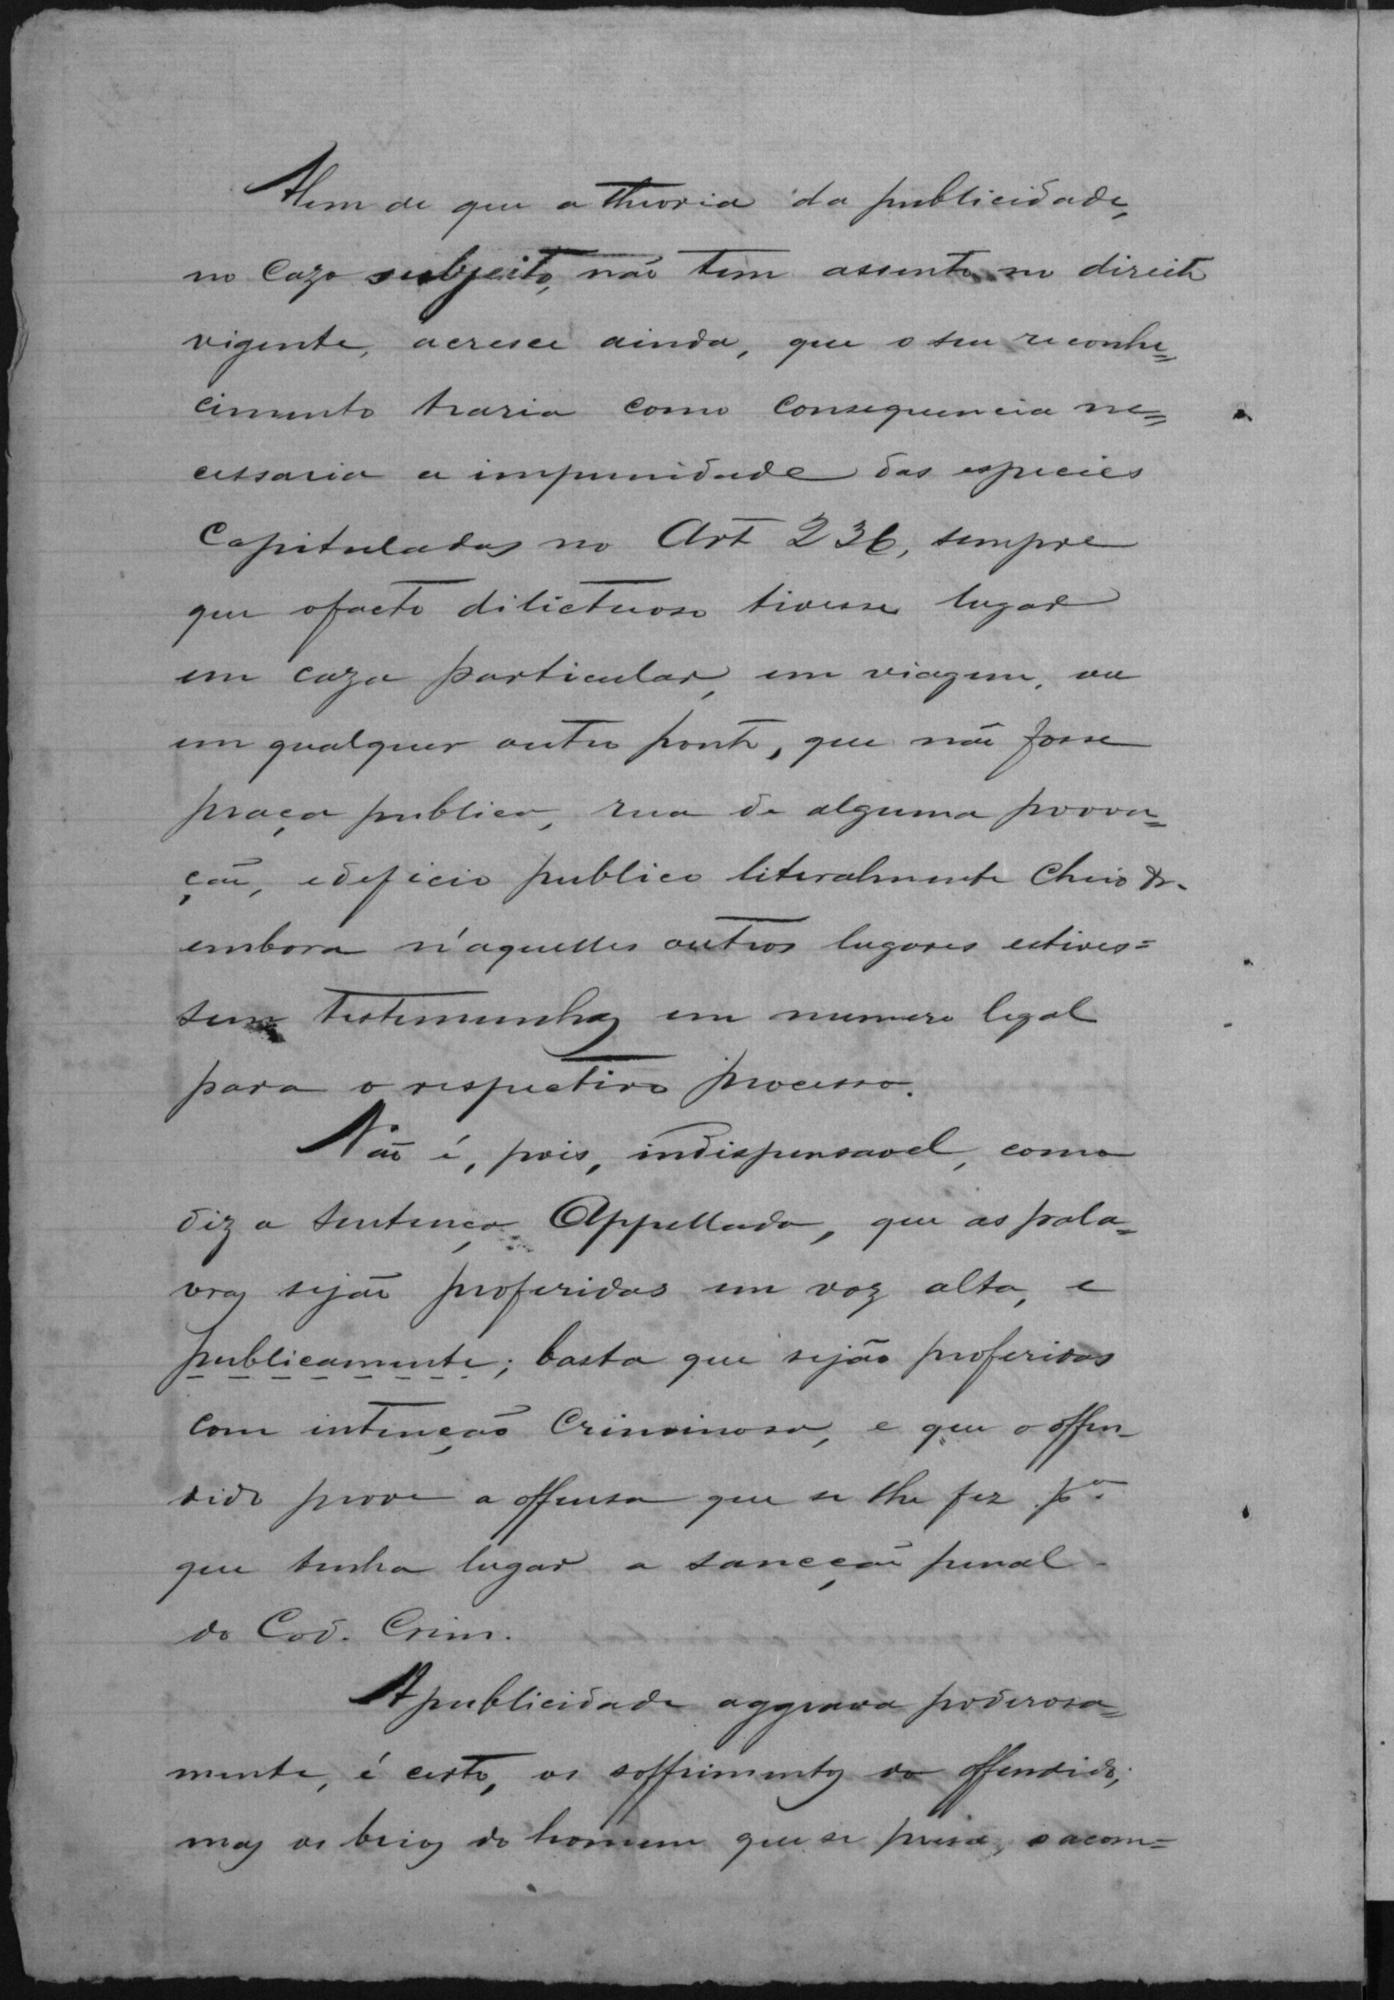 Alem de que a theoria da publicidade,
no cazo subjeito, não tem assento no direito
vigente, acresce ainda, que o seu reconhe=
cimento traria como consequencia ne=
cessaria a impunidade das especies
capituladas no Art 236, sempre
que o facto dilictuoso tivesse lugar
em caza particular, em viagem, ou
em qualquer outro ponto, que não fosse
praça publica, rua de alguma povoa=
ção, edeficio publico literalmente cheio &.
embora n'aquelles outros lugares estives=
sem testemunhas em numero legal
para o respectivo processo.
Não é, pois, indispensavel, como
diz a sentença Appellada, que as pala=
vras sejão proferidas em voz alta, e
publicamente; basta que sejão proferidas
com intenção criminosa, e que o offen-
dido prove a offensa que se lhe fez pª
que tenha lugar a sancção penal
do Cod. Crim.
A publicidade aggrava poderosa=
mente, é certo, os soffrimentos do offendido;
mas os brios do homem que se presa, o acom=